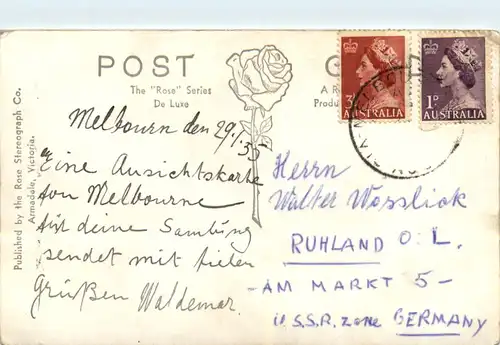 POST
The "Rose" Series
De Luxe
Published by the Rose Stereograph Co.
Armadale, Victoria.
3
AUSTRALIA
1D
AUSTRALIA
Melbourn den 29/1.55
Eine Ansichtskarte
von Melbourne
für deine Samlung
sendet mit fielen
Grüßen Waldemar.
Herrn
Walter Wossliok
RUHLAND O.L.
-AM MARKT 5-
U.S.S.R. zone GERMANY